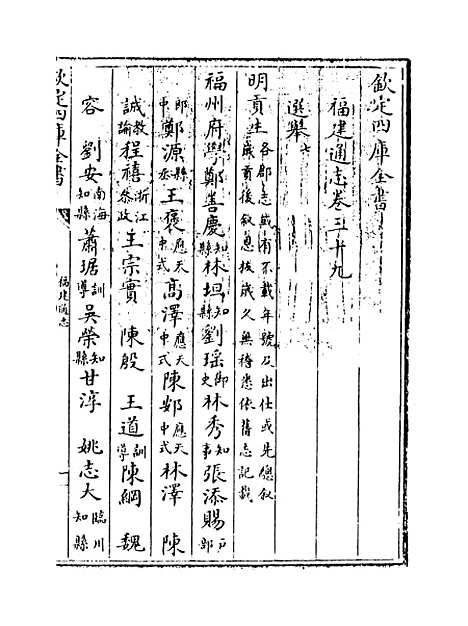 欽定四庫全書
福建通志卷三十九
選舉七
明貢生各郡志或有不載年號及出仕或先總叙歲貢後叙恩拔歲久無稽悉依舊志記載
福州府學鄭善慶知縣林垣知縣劉瑶御史林秀知事張添賜戶部
郎中鄭源縣丞王褒應天中式高澤應天中式陳郊應天中式林澤　陳
誠教諭程禧浙江參政王宗實　陳殷　王道訓導陳綱　魏
容　劉安南海知縣蕭琚訓導吳榮知縣甘淳　姚志大臨川知縣
欽定四庫全書
福建通志
一